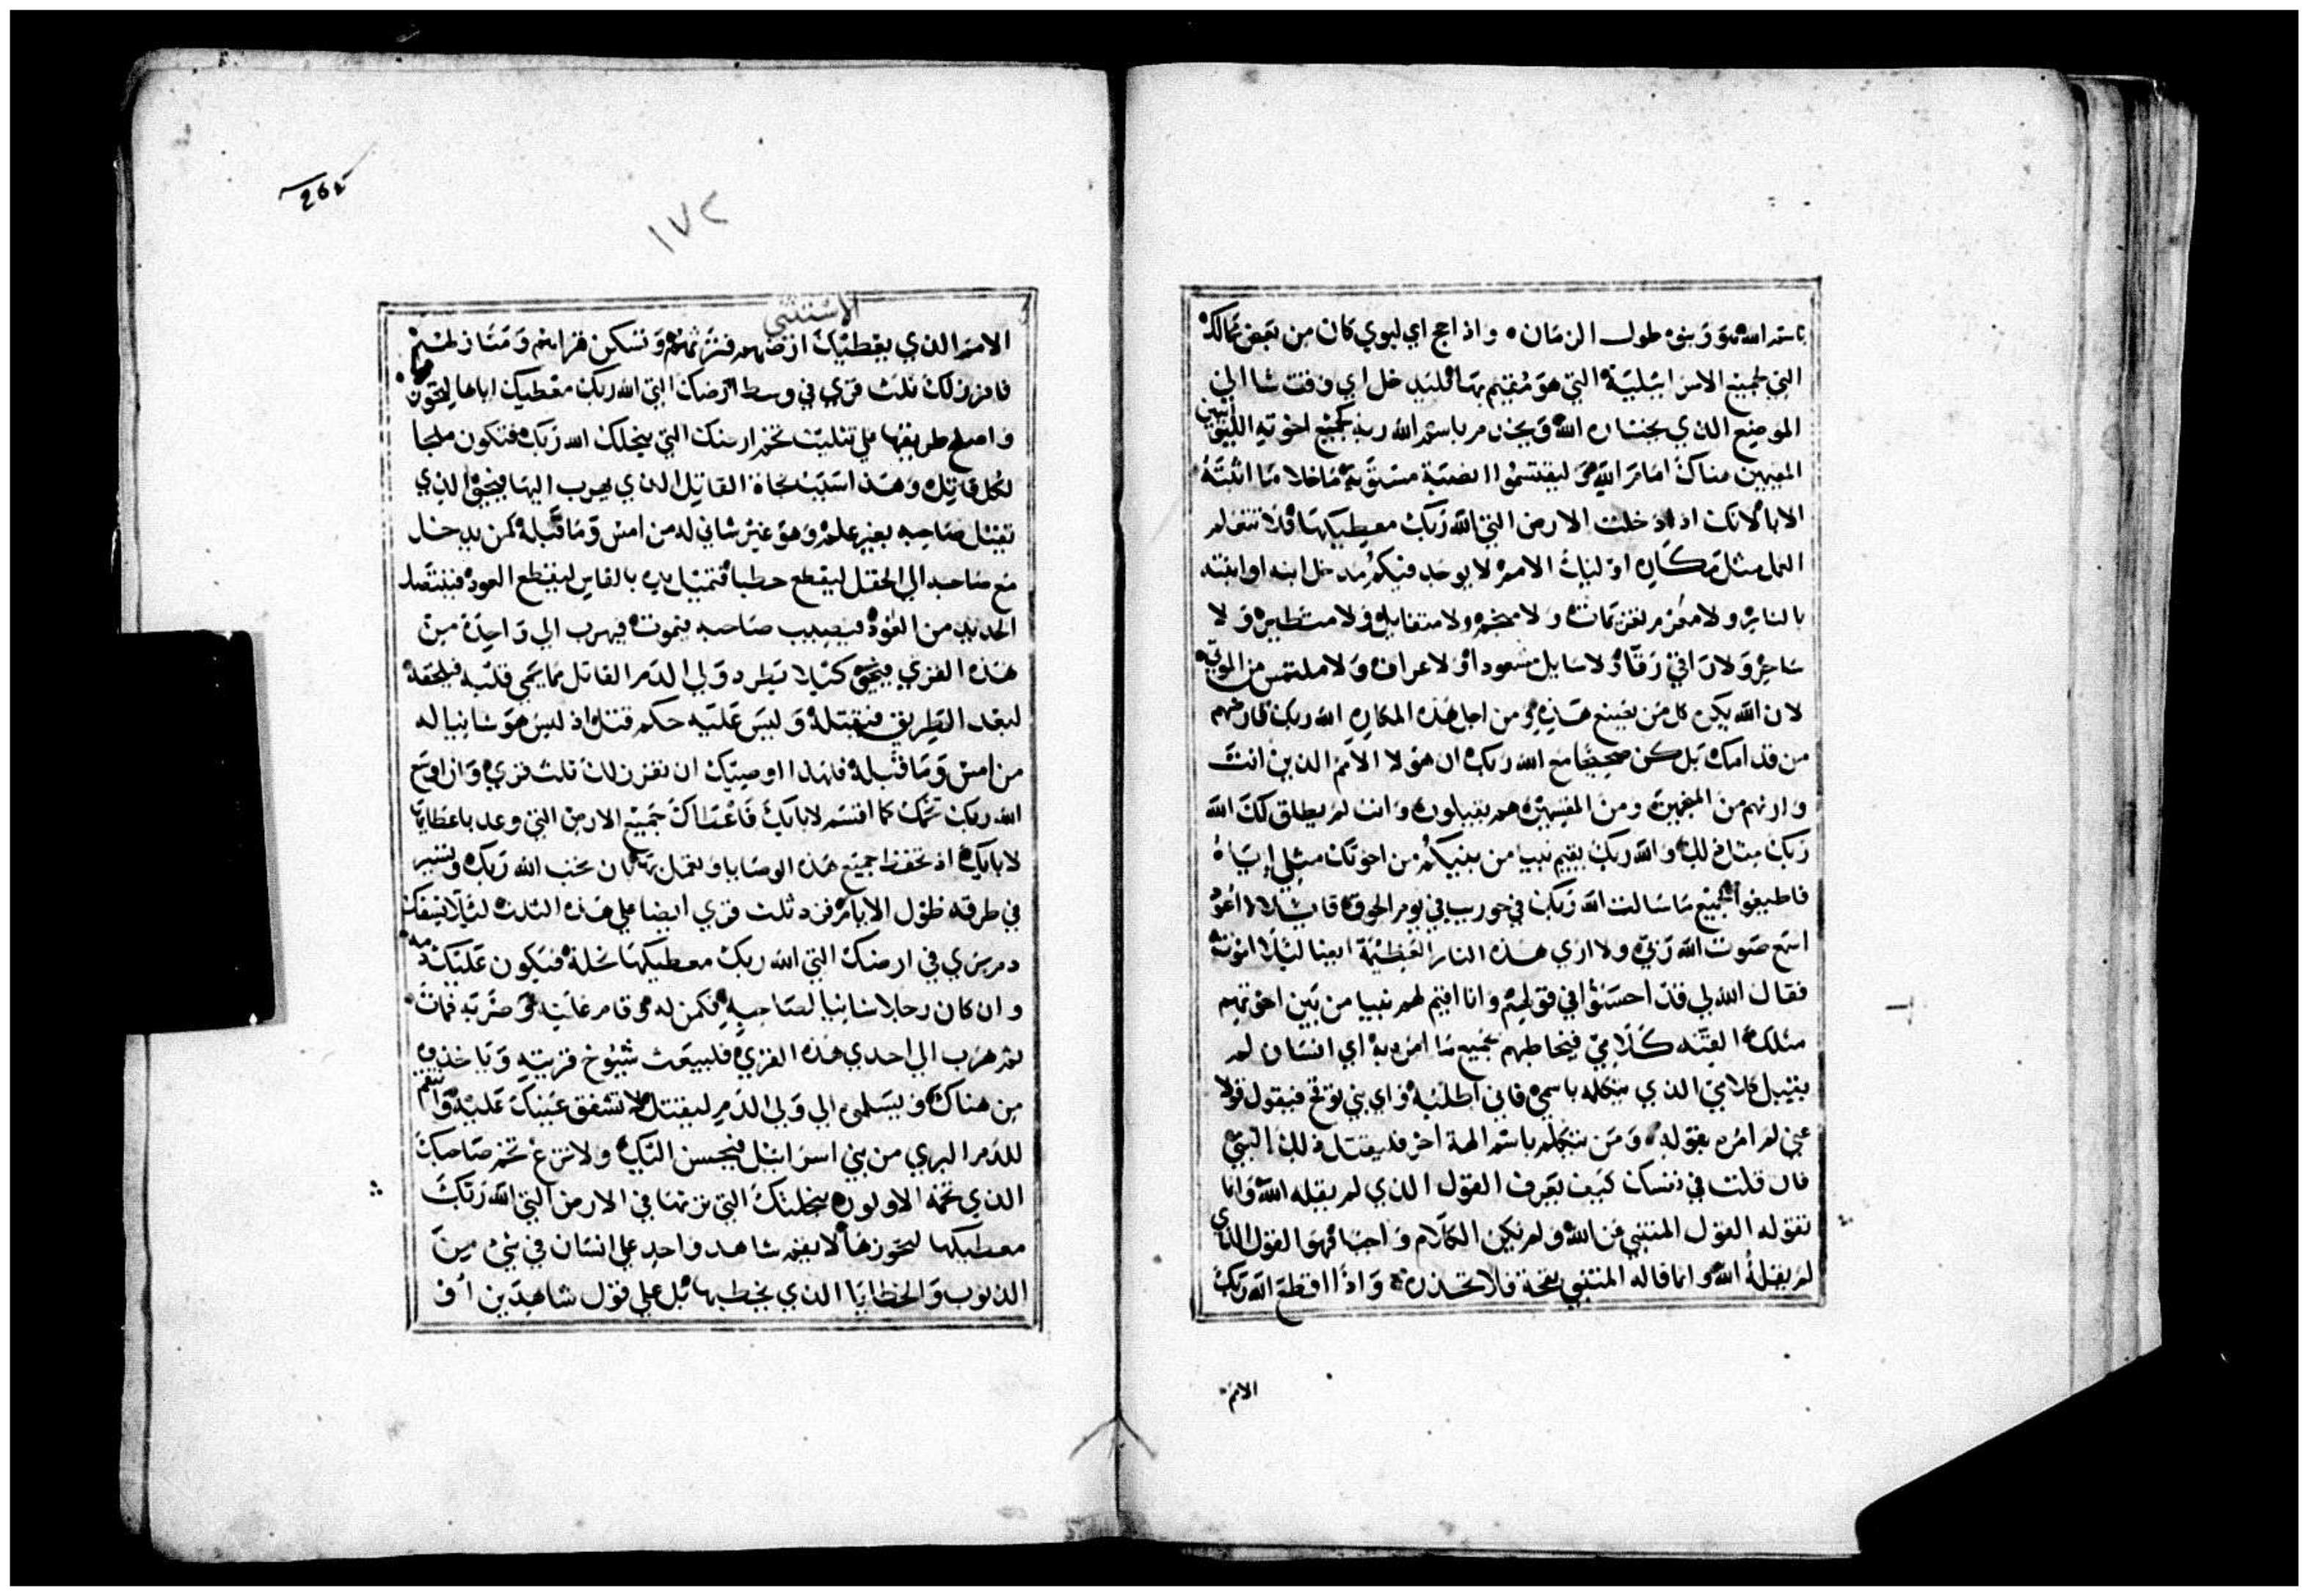 باسم الله هو وبنوه طول الزمان واذا جا اي ليوي كان من بعض محالك
التي لجميع الاسرائيلية التي هو مقيم بها فليدخل اي وقت شا الى
الموضع الذي يختاره الله ويخدم باسم الله ربه كجميع اخوته الليوانيين
المقيمين هناك امام الله وليقتسموا انصبة مستوية ما خلا ما اثبته
الابا لانك اذا دخلت الارض التي الله ربك معطيكها فلا تتعلم
العمل مثل مكاره اوليك الامم لا يوجد فيكم مدخل ابنه او ابنته
بالنار ولا مقرم تقزيمات ولا منجم ولا متفايل ولا متطير ولا
ساحر ولا راقي رقا ولا سايل مشعود او لا عراف ولا ملتمس من الموتى
لان الله يكره كل من يصنع هذه ومن اجل هذه المكاره الله ربك قارضهم
من قدامك بل كن صحيحا مع الله ربك ان هولا الامم الذين انت
وارثهم من المنجمين ومن المقسمين هم يقبلون وانت لم يطلق لك الله
ربك مثل ذلك والله ربك يقيم نبيا من بينكم من اخوتك مثلي اياه
فاطيعوا كجميع ما سالت الله ربك في حوريب في يوم الجوق قايلا لا اعود
اسمع صوت الله ربي ولا ارى هذه النار العظيمة ايضا ليلا اموت
فقال الله لي قد احسنوا في قولهم وانا اقيم لهم نبيا من بين اخوتهم
مثلك القنه كلامي فيخاطبهم بجميع ما امره به اي انسان لم
يقبل كلامي الذي يتكلم باسمي فاني اطلبه واي بني توقح فيقول قولا
عني لم امره بقوله ومن يتكلم باسم الهة اخر فليقتل ذلك النبي
فان قلت في نفسك كيف يعرف القول الذي لم يقله الله وانما
تقوله القول المتنبي عن الله ولم يكن الكلام واجبا فهو القول الذي
لم يقله الله وانما قاله المتنبي بقحة فلا تحذره واذا اقطع الله ربك
الامم
265
١٧٢
الاستثنى
الامم الذي يعطيك ارضهم فترثهم وتسكن قراهم ومنازلهم
فافرز لك ثلث قرى في وسط ارضك التي الله ربك معطيك اياها لتحوزها
واصلح طريقها على تثليث تخم ارضك التي ينحلك الله ربك فتكون ملجا
لكل قاتل وهذا سبب نجاة القاتل الذي يهرب اليها فينجو الذي
يقتل صاحبه بغير علم وهو غير شاني له من امس وما قبله كمن يدخل
مع صاحبه الى الحقل ليقطع حطبا فتميل يده بالفاس ليقطع العود فينتصل
الحديد من العود فيصيب صاحبه فيموت فيهرب الى واحدة من
هذه القرى فينجو كيلا يطرد ولي الدم القاتل مما يحمى قلبه فيلحقه
لبعد الطريق فيقتله وليس عليه حكم قتل اذ ليس هو شانيا له
من امس وما قبله فلهذا اوصيتك ان تفرز لك ثلث قرى وان اوسع
الله ربك تخمك كما اقسم لابايك فاعطاك جميع الارض التي وعد باعطايها
لابايك اذ تحفظ جميع هذه الوصايا وتعمل بها كان تحب الله ربك وتسير
في طرقه طول الايام فزد ثلث قرى ايضا على هذه الثلث ليلا يسفك
دم بري في ارضك التي الله ربك معطيكها نحلة فيكون عليك دمه
وان كان رجلا شانيا لصاحبه فكمن له وقام عليه وضربه فمات
ثم هرب الى احدى هذه القرى فليبعث شيوخ قريته وياخذوه
من هناك ويسلم الى ولي الدم ليقتله لا تشفق عينك عليه وانتقم
للدم البري من بني اسرائيل فيحسن اليك ولا تزع تخم صاحبك
الذي تخمه الاولون بنحلتك التي ترثها في الارض التي الله ربك
معطيكها لتحوزها لا يقم شاهد واحد على انسان في شي من
الذنوب والخطايا الذي يخطيها بل على قول شاهدين او